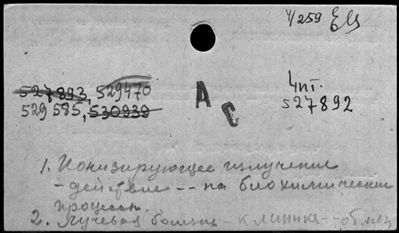 4/259
527893, 529470
529585, 530939
А Є
4пт.
527892
1. Ионизирующее излучение
- действие -- на биохимические
процессы.
2. Лучевая болезнь - клиника -- обмен